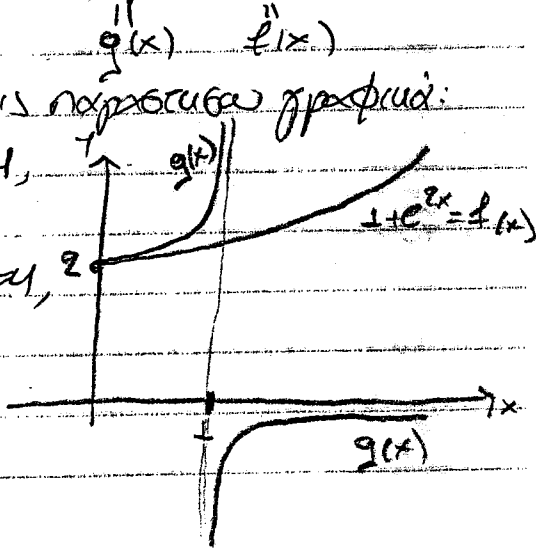 g(x) f(x)
παραστήσω γραφικά:
g(x)
1+e^{2x}=f(x)
2
x
1
g(x)